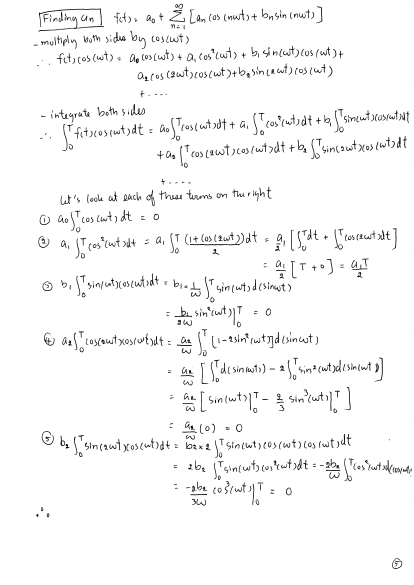 Finding an f(t) = a₀ + ∞ Σ n=1 [an cos(nωt) + bn sin(nωt)]
- multiply both sides by cos(ωt)
∴ f(t) cos(ωt) = a₀ cos(ωt) + a₁ cos²(ωt) + b₁ sin(ωt) cos(ωt) +
a₂ cos(2ωt) cos(ωt) + b₂ sin(2ωt) cos(ωt)
+ ....
- integrate both sides
∴ ∫₀ᵀ f(t) cos(ωt) dt = a₀ ∫₀ᵀ cos(ωt) dt + a₁ ∫₀ᵀ cos²(ωt) dt + b₁ ∫₀ᵀ sin(ωt) cos(ωt) dt
+ a₂ ∫₀ᵀ cos(2ωt) cos(ωt) dt + b₂ ∫₀ᵀ sin(2ωt) cos(ωt) dt
+ ....
let's look at each of these terms on the right
① a₀ ∫₀ᵀ cos(ωt) dt = 0
② a₁ ∫₀ᵀ cos²(ωt) dt = a₁ ∫₀ᵀ (1 + cos(2ωt))/2 dt = a₁/2 [∫₀ᵀ dt + ∫₀ᵀ cos(2ωt) dt]
= a₁/2 [T + 0] = a₁T/2
③ b₁ ∫₀ᵀ sin(ωt) cos(ωt) dt = b₁ × 1/ω ∫₀ᵀ sin(ωt) d(sin ωt)
= b₁/2ω sin²(ωt) |₀ᵀ = 0
④ a₂ ∫₀ᵀ cos(2ωt) cos(ωt) dt = a₂/ω ∫₀ᵀ [1 - 2sin²(ωt)] d(sin ωt)
= a₂/ω [∫₀ᵀ d(sin ωt) - 2 ∫₀ᵀ sin²(ωt) d(sin ωt)]
= a₂/ω [sin(ωt) |₀ᵀ - 2/3 sin³(ωt) |₀ᵀ]
= a₂/ω (0) = 0
⑤ b₂ ∫₀ᵀ sin(2ωt) cos(ωt) dt = b₂ × 2 ∫₀ᵀ sin(ωt) cos(ωt) cos(ωt) dt
= 2b₂ ∫₀ᵀ sin(ωt) cos²(ωt) dt = -2b₂/ω ∫₀ᵀ cos²(ωt) d(cos ωt)
= -2b₂/3ω cos³(ωt) |₀ᵀ = 0
∴
⑤